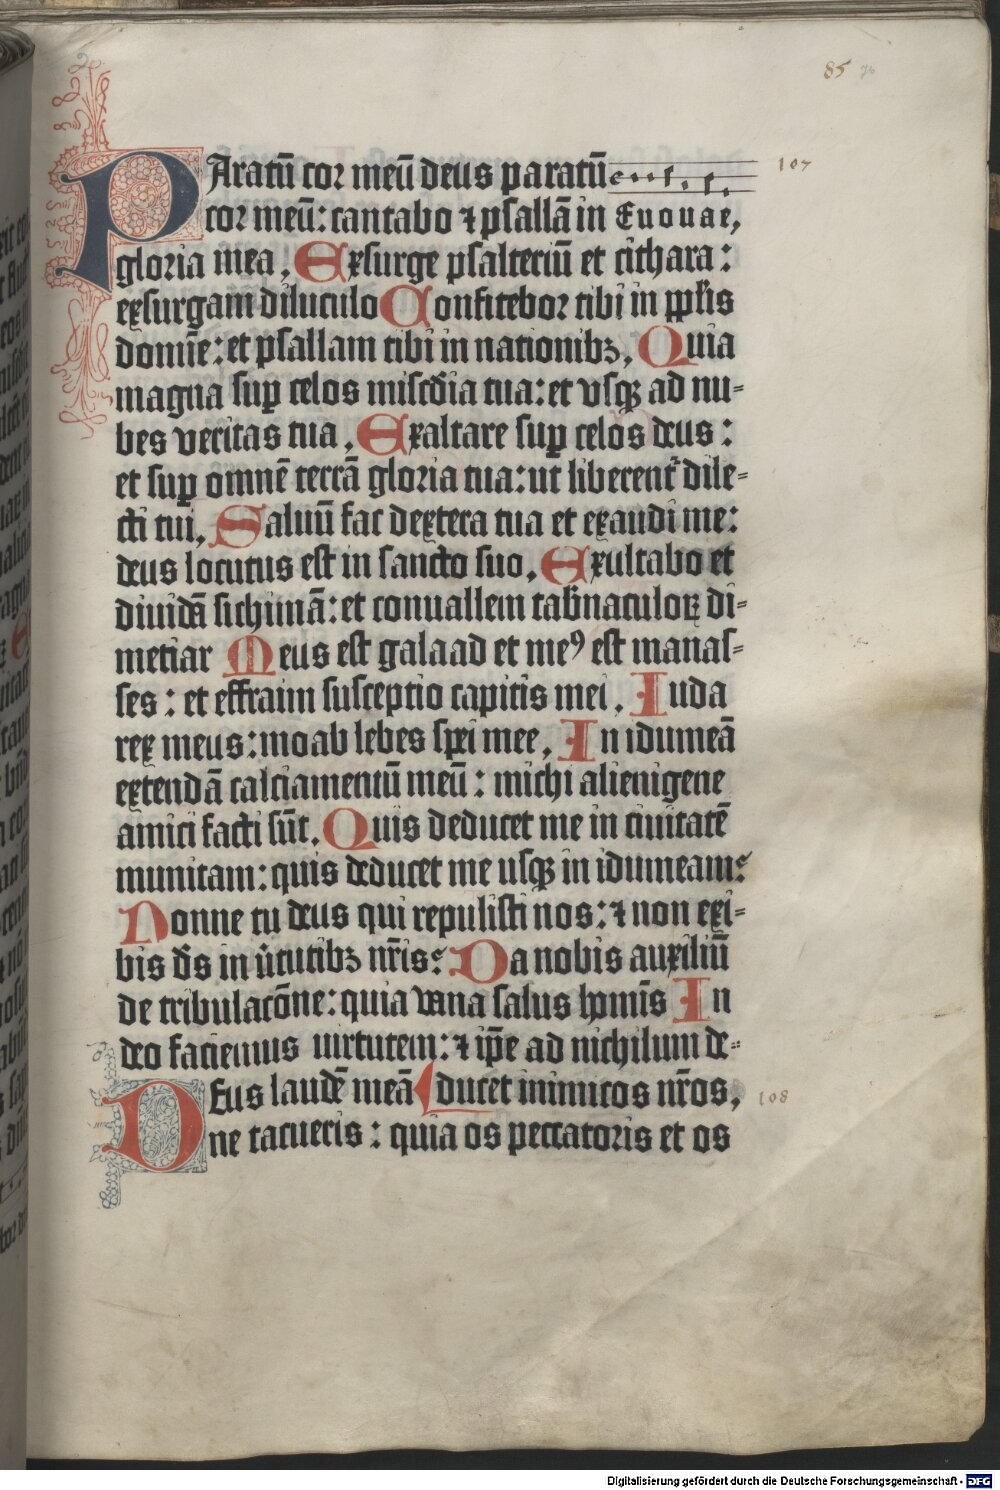 85 76
PAratū cor meū deus paratū 107
cor meū: cantabo ⁊ psallā in Euouae,
gloria mea, Exsurge psalteriū et cithara:
exsurgam diluculo Confitebor tibi in ppl̄is
domīe: et psallam tibi in nationibꝫ, Quia
magna suꝑ celos miscd̄ia tua: et vsqꝫ ad nu-
bes veritas tua, Exaltare suꝑ celos deus:
et suꝑ omnē terrā gloria tua: ut liberent᷑ dile-
cti tui, Saluū fac dextera tua et exaudi me:
deus locutus est in sancto suo, Exultabo et
diuidā sichimā: et conuallem tab̄naculoꝝ di-
metiar Meus est galaad et meꝰ est manas-
ses: et effraim susceptio capitis mei, Iuda
rex meus: moab lebes spei mee, In idumeā
extendā calciamentū meū: michi alienigene
amici facti sūt, Quis deducet me in ciuitatē
munitam: quis deducet me usqꝫ in idumeam?
Nonne tu deus qui repulisti nos: ⁊ non exi-
bis d̄s in v̄tutibꝫ nr̄is? Da nobis auxiliū
de tribulacōne: quia vana salus homīs In
deo faciemus uirtutem: ⁊ ip̄e ad nichilum de-
DEus laudē meā ducet inimicos nr̄os, 108
ne tacueris: quia os peccatoris et os
Digitalisierung gefördert durch die Deutsche Forschungsgemeinschaft - DFG